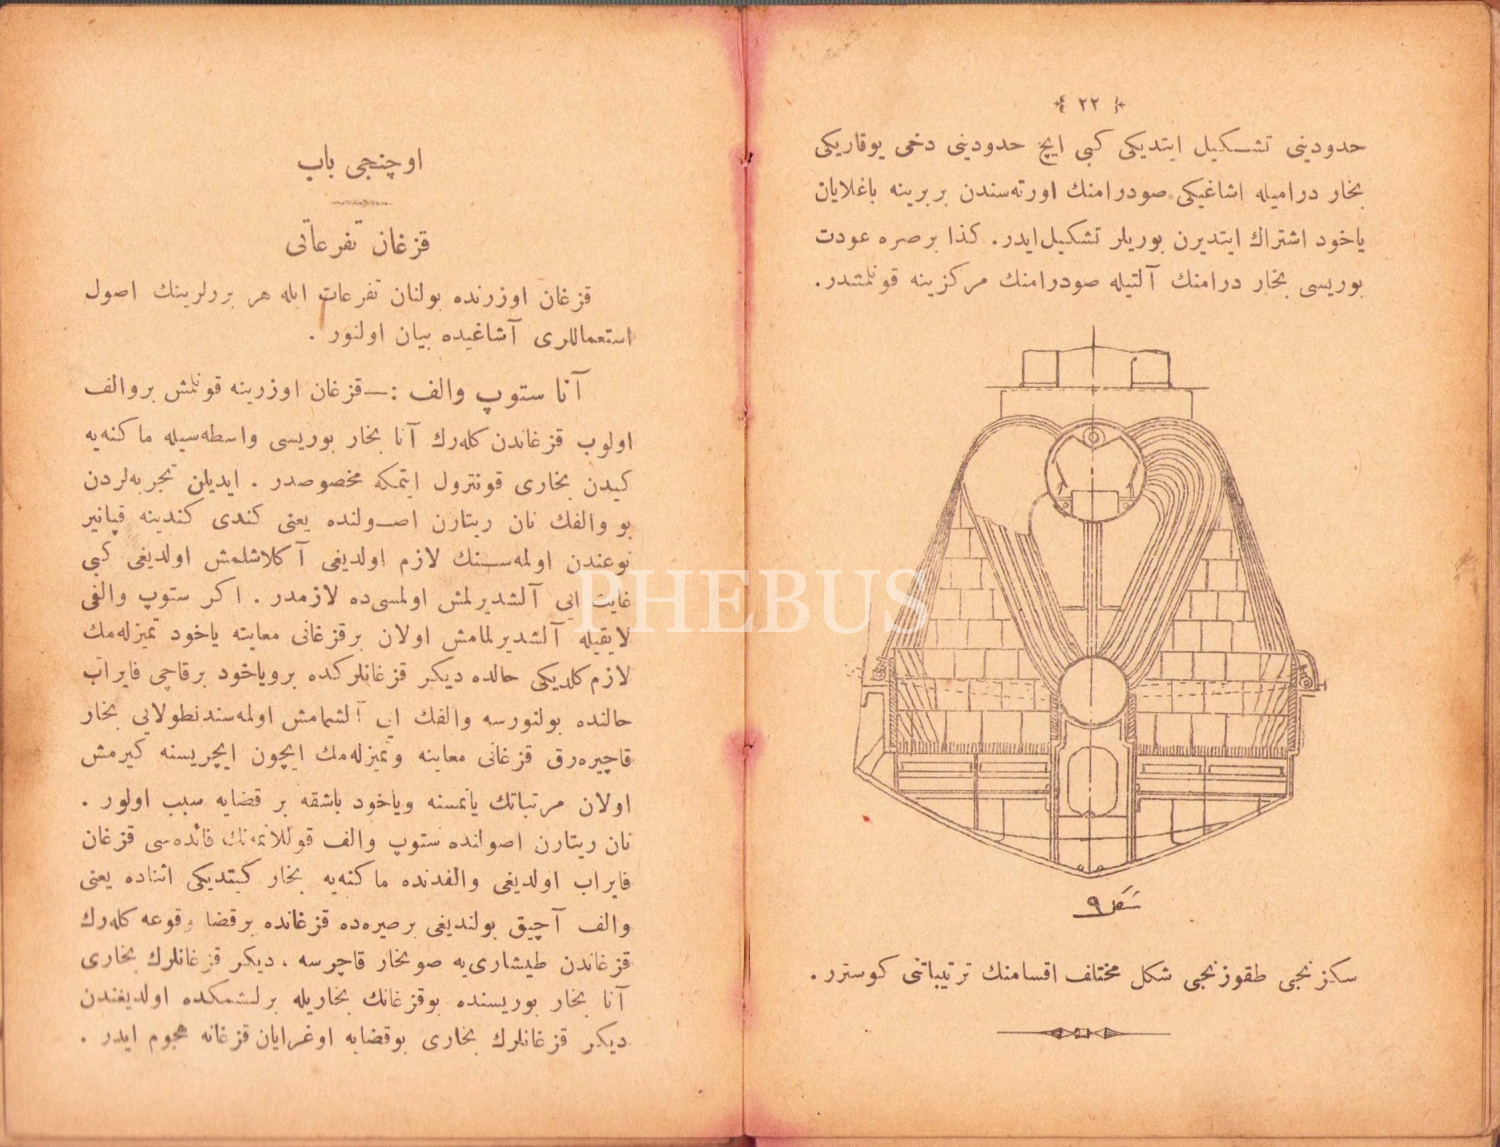 ﴿ ٢٢ ﴾
حدودینی تشکیل ایتدیکی کبی ایچ حدودینی دخی یوقاریکی
بخار درامیله اشاغیکی صودرامنك اورته‌سندن بربرینه باغلایان
یاخود اشتراك ایتدیرن بوریلر تشکیل ایدر. کذا برصره عودت
بوریسی بخار درامنك آلتیله صودرامنك مرکزینه قونلمشدر.
شکل ٩
سکزنجی طقوزنجی شکل مختلف اقسامنك ترتیباتنی کوسترر.
اوچنجی باب
قزغان تفرعاتی
قزغان اوزرنده بولنان تفرعات ایله هر بررلرینك اصول
استعماللری آشاغیده بیان اولنور.
آنا ستوپ والف :— قزغان اوزرینه قونلمش بروالف
اولوب قزغاندن کله‌رك آنا بخار بوریسی واسطه‌سیله ماکنه‌یه
کیدن بخاری قونترول ایتمکه مخصوصدر. ایدیلن تجربه‌لردن
بو والفك نان ریتارن اصولنده یعنی کندی کندینه قپانیر
نوعندن اولمه‌سنك لازم اولدیغی آکلاشلمش اولدیغی کبی
غایت ایی آلشدیرلمش اولمسی‌ده لازمدر. اکر ستوپ والفی
لایقیله آلشدیرلمامش اولان برقزغانی معاینه یاخود تمیزله‌مك
لازم کلدیکی حالده دیکر قزغانلرکده برویاخود برقاچی فایراب
حالنده بولنورسه والفك ایی آلشمامش اولمه‌سندنطولایی بخار
قاچیره‌رق قزغانی معاینه وتمیزله‌مك ایچون ایچریسنه کیرمش
اولان مرتباتك یانمسنه ویاخود باشقه بر قضایه سبب اولور.
نان ریتارن اصولنده ستوپ والف قوللانمه‌نك فائده‌سی قزغان
فایراب اولدیغی والفدنده ماکنه‌یه بخار کیتدیکی اثناده یعنی
والف آچیق بولندیغی برصیره‌ده قزغانده برقضا وقوعه کله‌رك
قزغاندن طیشاری‌یه صوبخار قاچرسه، دیکر قزغانلرك بخاری
آنا بخار بوریسنده بوقزغانك بخاریله برلشمکده اولدیغندن
دیکر قزغانلرك بخاری بوقضایه اوغرایان قزغانه هجوم ایدر.
PHEBUS